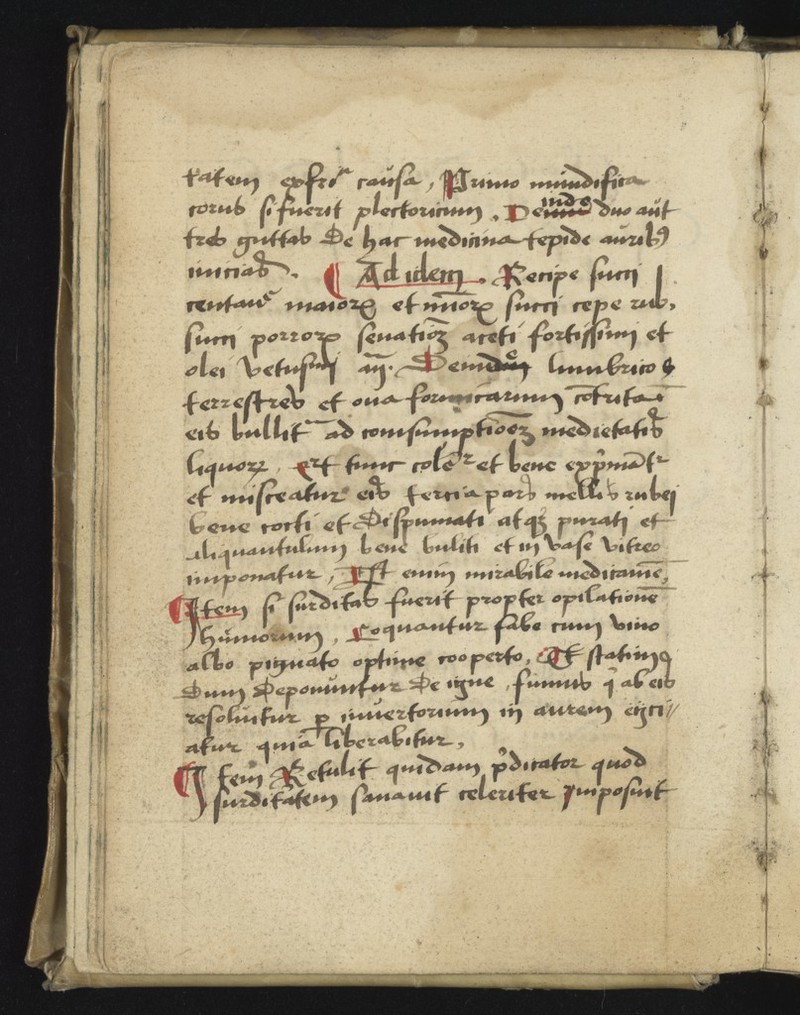 tatem ex frĩa causa, Primo mundifica
corus si fuerit plectoricum. Deinde duo aut
tres guttas De hac medicina tepide auribꝰ
inicias. ¶ Ad idem. Recipe succi
centaur maioꝝ et minoꝝ succi cepe rub,
succi porroꝝ aceti fortissimi et
olei vetusti añ. Deinde lumbricos
terrestres et oua formicarum cõtrita ĩ
eis bullit ad comsumptiõeꝫ medietatis
liquoꝝ. Et tunc coler et bene exprimãtr
et misceatur eis tercia pars mellis rubei
bene cocti et Dispumati atqꝫ purati et
aliquantulum bene buliti et in vase vitreo
imponatur, Est enim mirabile medicamẽ,
¶ Item si surditas fuerit propter opilationẽ
humorum, Coquantur fabe cum vino
albo pignato optime cooperto, Et statim
Dum Deponuntur De igne, fumus q̃ ab eis
resoluitur ꝑ inuertorium in aurem eijci
atur quia liberabitur,
¶ Item Retulit quidam p̃dicator quod
surditatem sanauit celeriter Imposuit